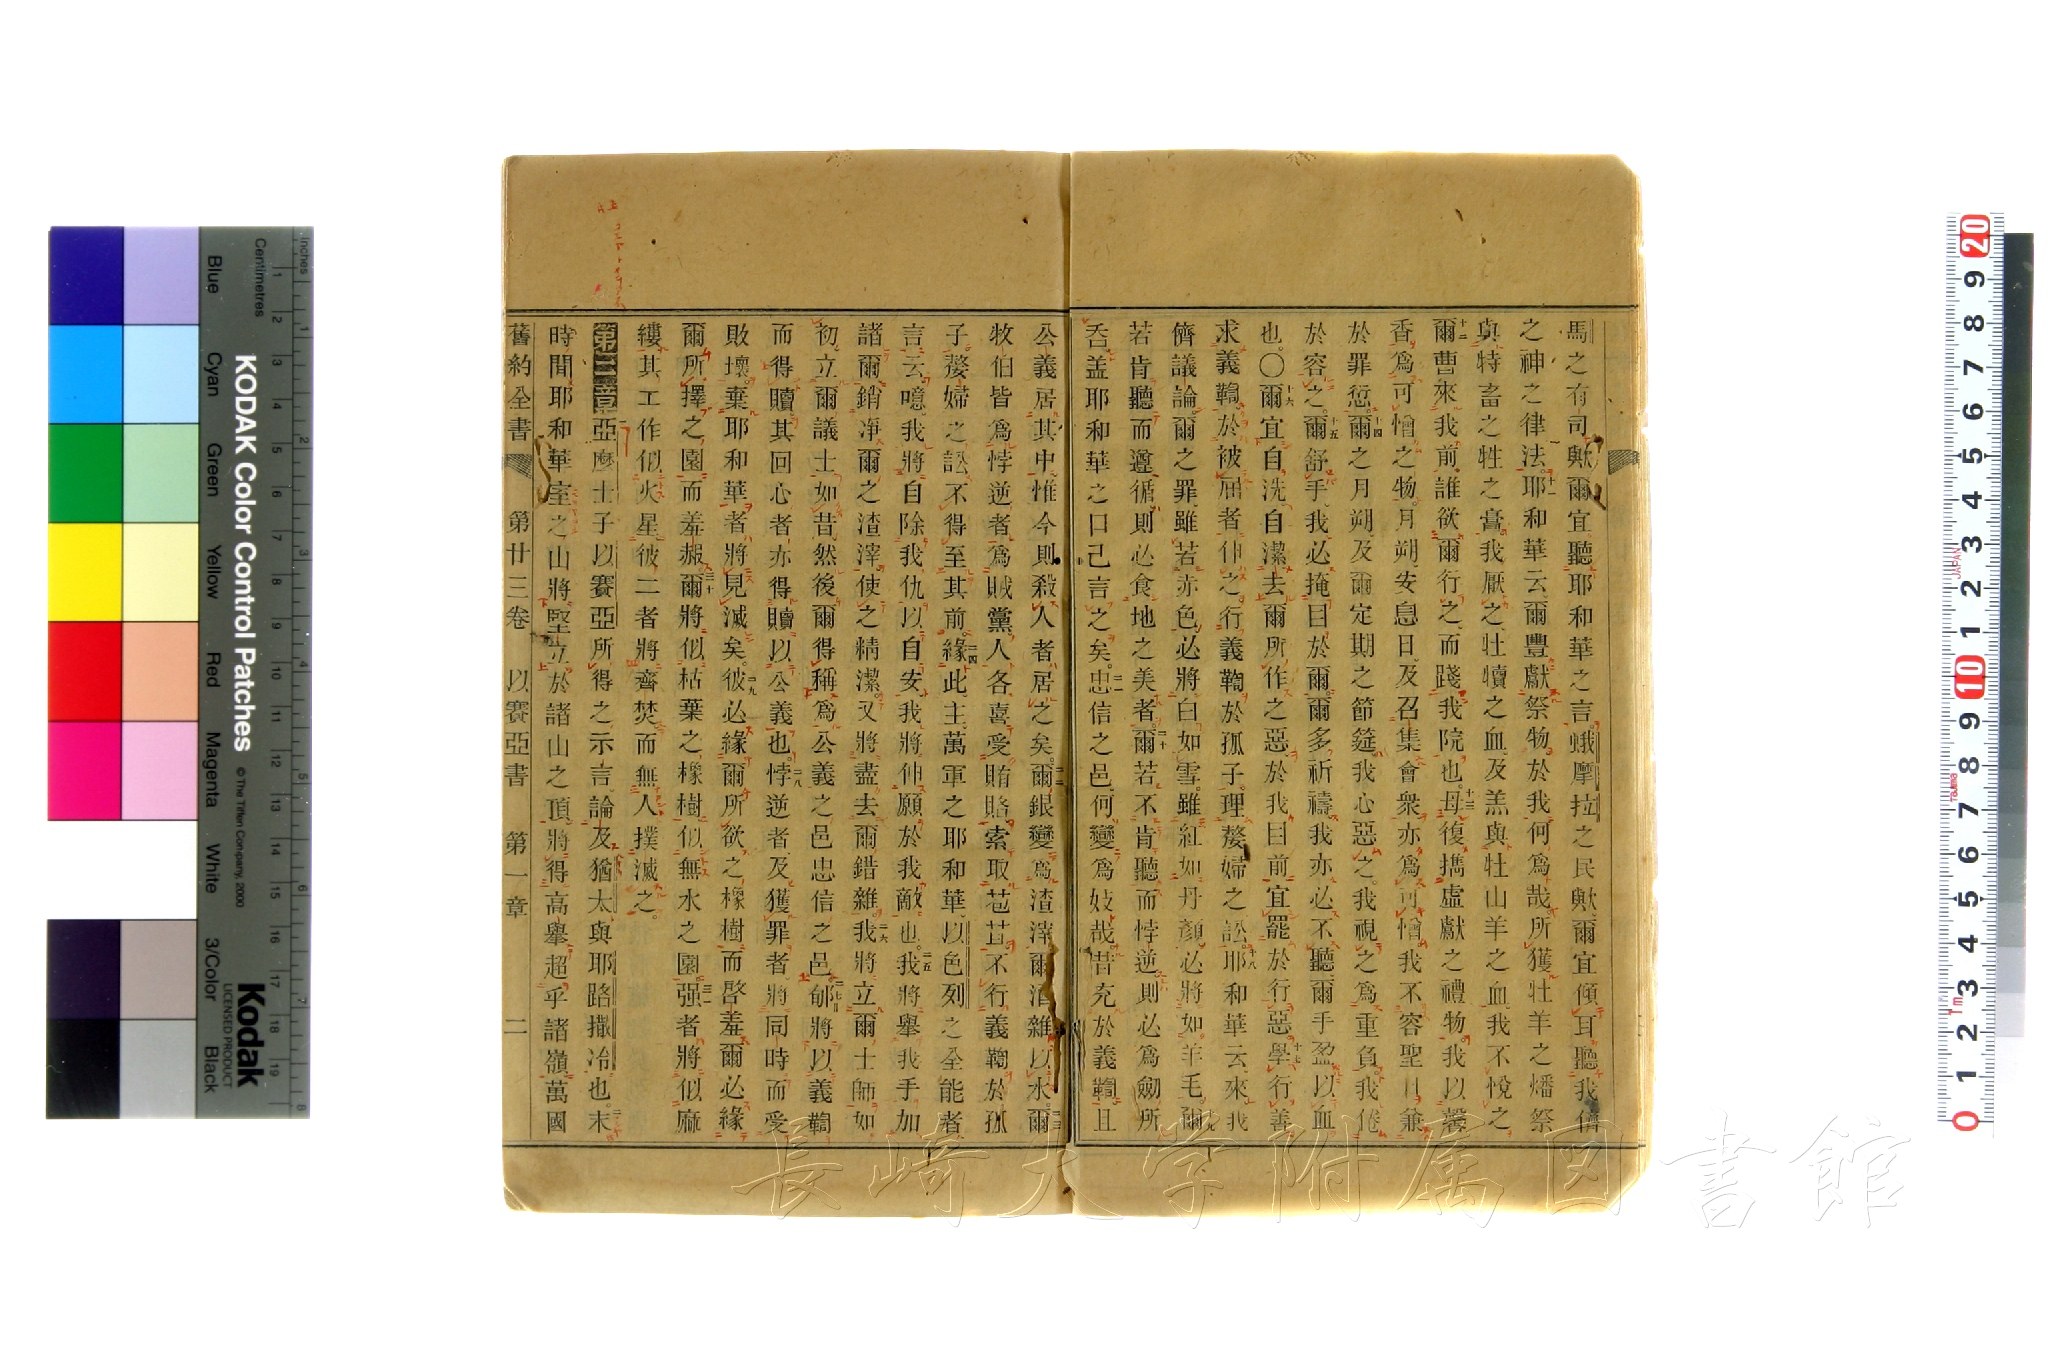 馬之有司歟爾宜聽耶和華之言蛾摩拉之民歟爾宜傾耳聽我儕
之神之律法十一耶和華云爾豐獻祭物於我何爲哉所獲牡羊之燔祭
與特畜之牲之膏我厭之牡犢之血及羔與牡山羊之血我不悅之
十二爾曹來我前誰欲爾行之而踐我院也十三毋復攜虛獻之禮物我以馨
香爲可憎之物月朔安息日及召集會衆亦爲可憎我不容聖日兼
於罪愆十四爾之月朔及爾定期之節筵我心惡之我視之爲重負我倦
於容之十五爾舒手我必掩目於爾爾多祈禱我亦必不聽爾手盈以血
也〇十六爾宜自洗自潔去爾所作之惡於我目前宜罷於行惡十七學行善
求義鞫於被屈者伸之行義鞫於孤子理嫠婦之訟十八耶和華云來我
儕議論爾之罪雖若赤色必將白如雪雖紅如丹顏必將如羊毛十九爾
若肯聽而遵循則必食地之美者二十爾若不肯聽而悖逆則必爲劒所
吞蓋耶和華之口己言之矣二一忠信之邑何變爲妓哉昔充於義鞫且
公義居其中惟今則殺人者居之矣二二爾銀變爲渣滓爾酒雜以水二三爾
牧伯皆爲悖逆者爲賊黨人各喜受賄賂索取苞苴不行義鞫於孤
子嫠婦之訟不得至其前二四緣此主萬軍之耶和華以色列之全能者
言云噫我將自除我仇以自安我將伸願於我敵也二五我將舉我手加
諸爾銷凈爾之渣滓使之精潔又將盡去爾錯雜二六我將立爾士師如
初立爾議士如昔然後爾得稱爲公義之邑忠信之邑二七郇將以義鞫
而得贖其回心者亦得贖以公義也二八悖逆者及獲罪者將同時而受
敗壞棄耶和華者將見滅矣二九彼必緣爾所欲之橡樹而啓羞爾必緣
爾所擇之園而羞赧三十爾將似枯葉之橡樹似無水之園三一强者將似麻
縷其工作似火星彼二者將齊焚而無人撲滅之
第二章亞麼士子以賽亞所得之示言論及猶太與耶路撒冷也二末
時間耶和華室之山將堅立於諸山之頂將得高舉超乎諸嶺萬國
舊約全書 第廿三卷 以賽亞書 第一章 二
KODAK Color Control Patches © The Tiffen Company, 2000
Kodak LICENSED PRODUCT
Inches
Centimetres
Blue Cyan Green Yellow Red Magenta White 3/Color Black
長崎大学附属図書館